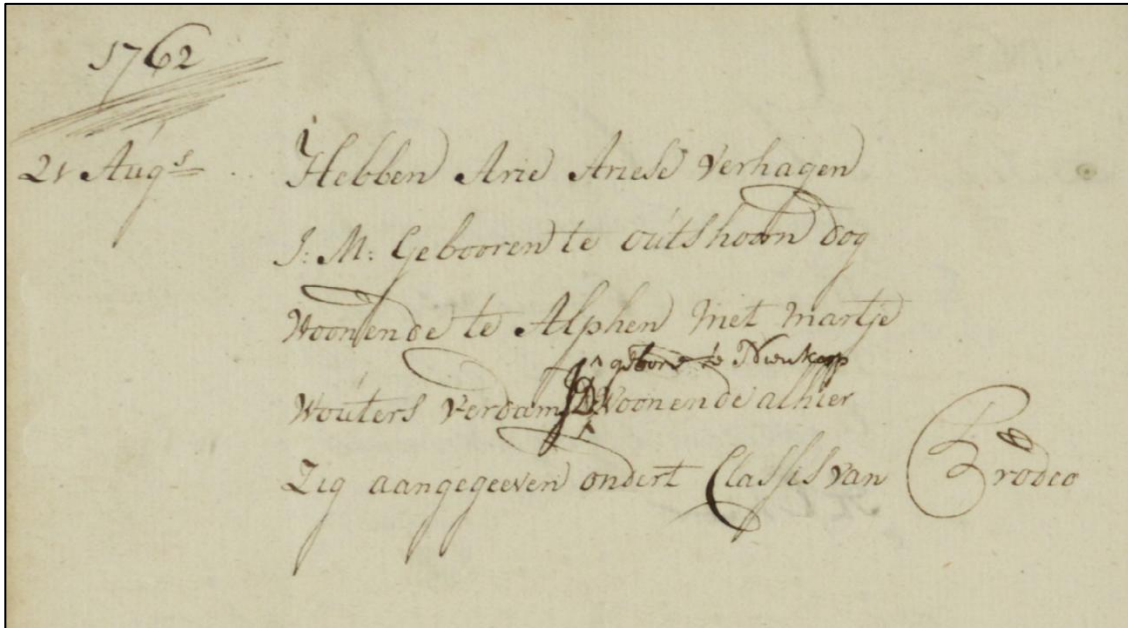 1762
21 Augs Hebben Arie Ariese Verhagen
J: M: Gebooren te outshoorn dog
Woonende te Alphen Met Martje
^ gebore te Nieukoop
Wouters Verdam JD Woonende alhier
Zig aangegeeven ondert Classis van Prodeo